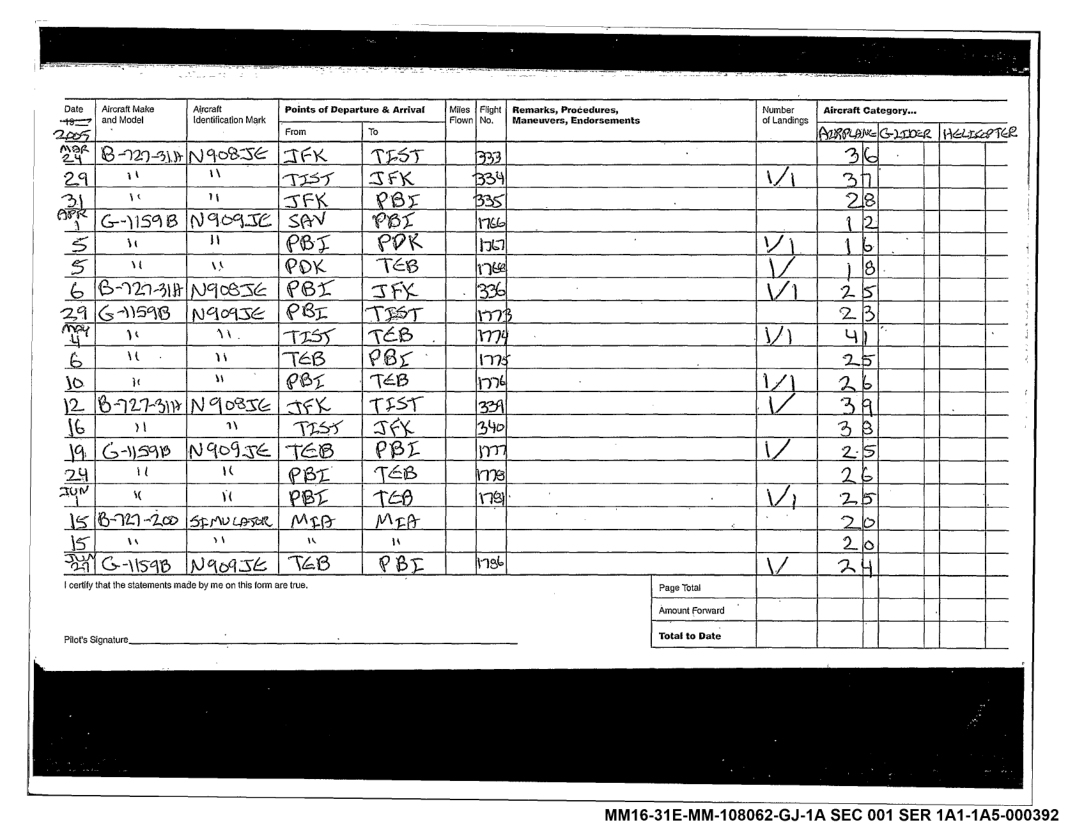 Date Aircraft Make and Model Aircraft Identification Mark Points of Departure & Arrival Miles Flown Flight No. Remarks, Procedures, Maneuvers, Endorsements Number of Landings Aircraft Category...
19 2005 From To AIRPLANE GLIDER HELICOPTER
MAR 24 B-727-31H N908JE JFK TIST 333 3 6
29 " " TIST JFK 334 1/1 3 7
31 " " JFK PBI 335 2 8
APR 1 G-1159B N909JE SAV PBI 1766 1 2
5 " " PBI PDK 1767 1/1 1 6
5 " " PDK TEB 1768 1/ 1 8
6 B-727-31H N908JE PBI JFK 336 1/1 2 5
29 G-1159B N909JE PBI TIST 1773 2 3
MAY 4 " " TIST TEB 1774 1/1 4 1
6 " " TEB PBI 1775 2 5
10 " " PBI TEB 1776 1/1 2 6
12 B-727-31H N908JE JFK TIST 339 1/ 3 9
16 " " TIST JFK 340 3 8
19 G-1159B N909JE TEB PBI 1777 1/ 2 5
24 " " PBI TEB 1778 2 6
JUN 1 " " PBI TEB 1781 1/1 2 5
15 B-727-200 SIMULATOR MIA MIA 2 0
15 " " " " 2 0
JUN 29 G-1159B N909JE TEB PBI 1786 1/ 2 4
I certify that the statements made by me on this form are true. Page Total
Amount Forward
Pilot's Signature Total to Date
MM16-31E-MM-108062-GJ-1A SEC 001 SER 1A1-1A5-000392